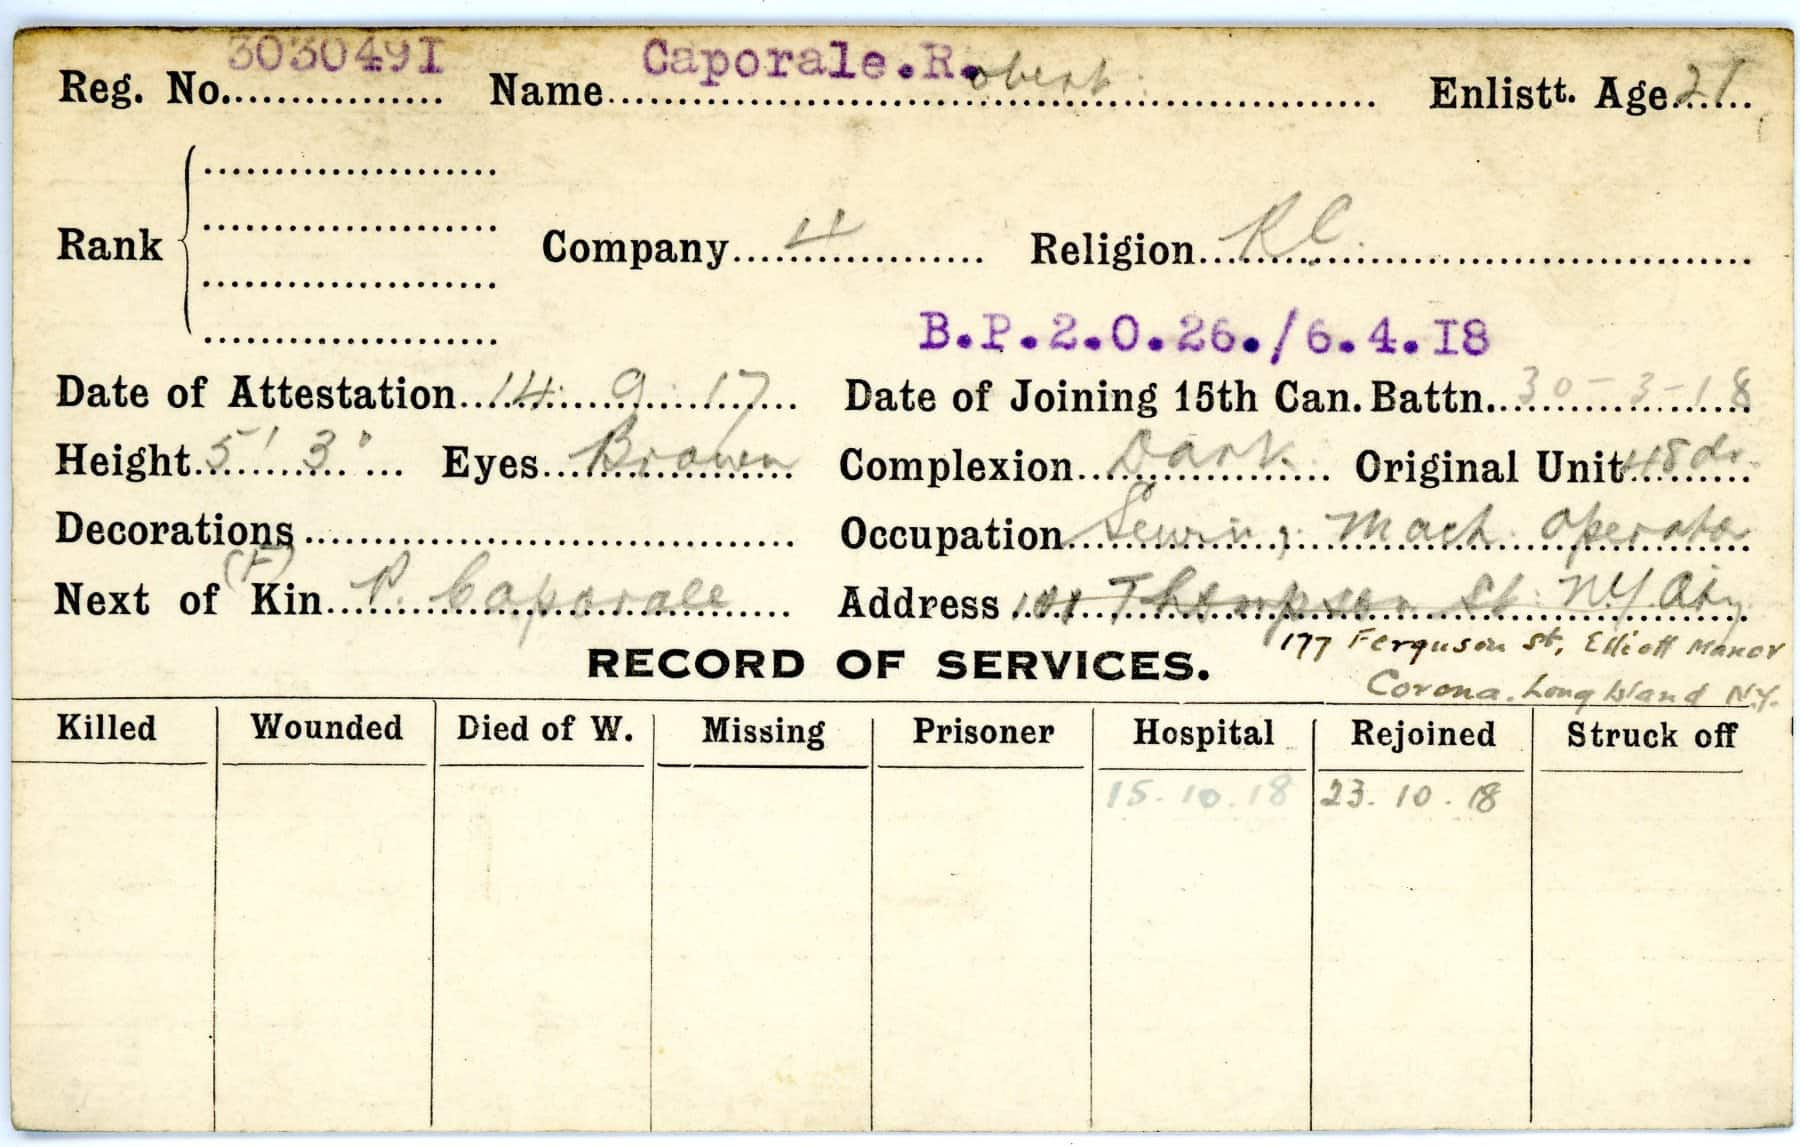 Reg. No. 3030491 Name Caporale.R.obert Enlistt. Age 21
Rank Company 4 Religion RC
B.P.2.O.26./6.4.18
Date of Attestation 14. 9. 17 Date of Joining 15th Can. Battn. 30-3-18
Height 5' 3" Eyes Brown Complexion Dark Original Unit 48
Decorations Occupation Sewing Mach. operator
(F)
Next of Kin P. Caporale Address 101 Thompson St. N.Y. City
177 Ferguson St, Elliott Manor
RECORD OF SERVICES.
Corona. Long Island N.Y.
Killed Wounded Died of W. Missing Prisoner Hospital Rejoined Struck off
15.10.18 23.10.18